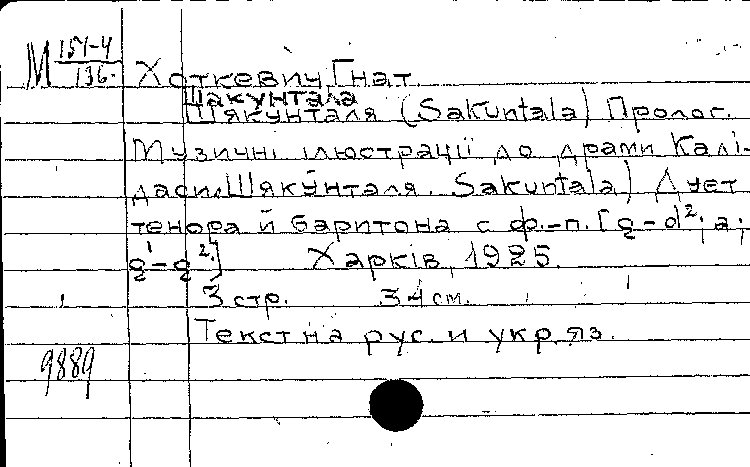 М 151-4
136.
Хоткевич, Гнат.
Шакунтала
Шякунталя (Sakuntala) Пролог.
Музичні ілюстрації до драми Калі-
даси „Шякунталя. Sakuntala) Дует
тенора й баритона с ф.-п. [g-d²; a;
g¹-g².] Харків, 1925.
3 стр. 34 см.
Текст на рус. и укр. яз.
9889